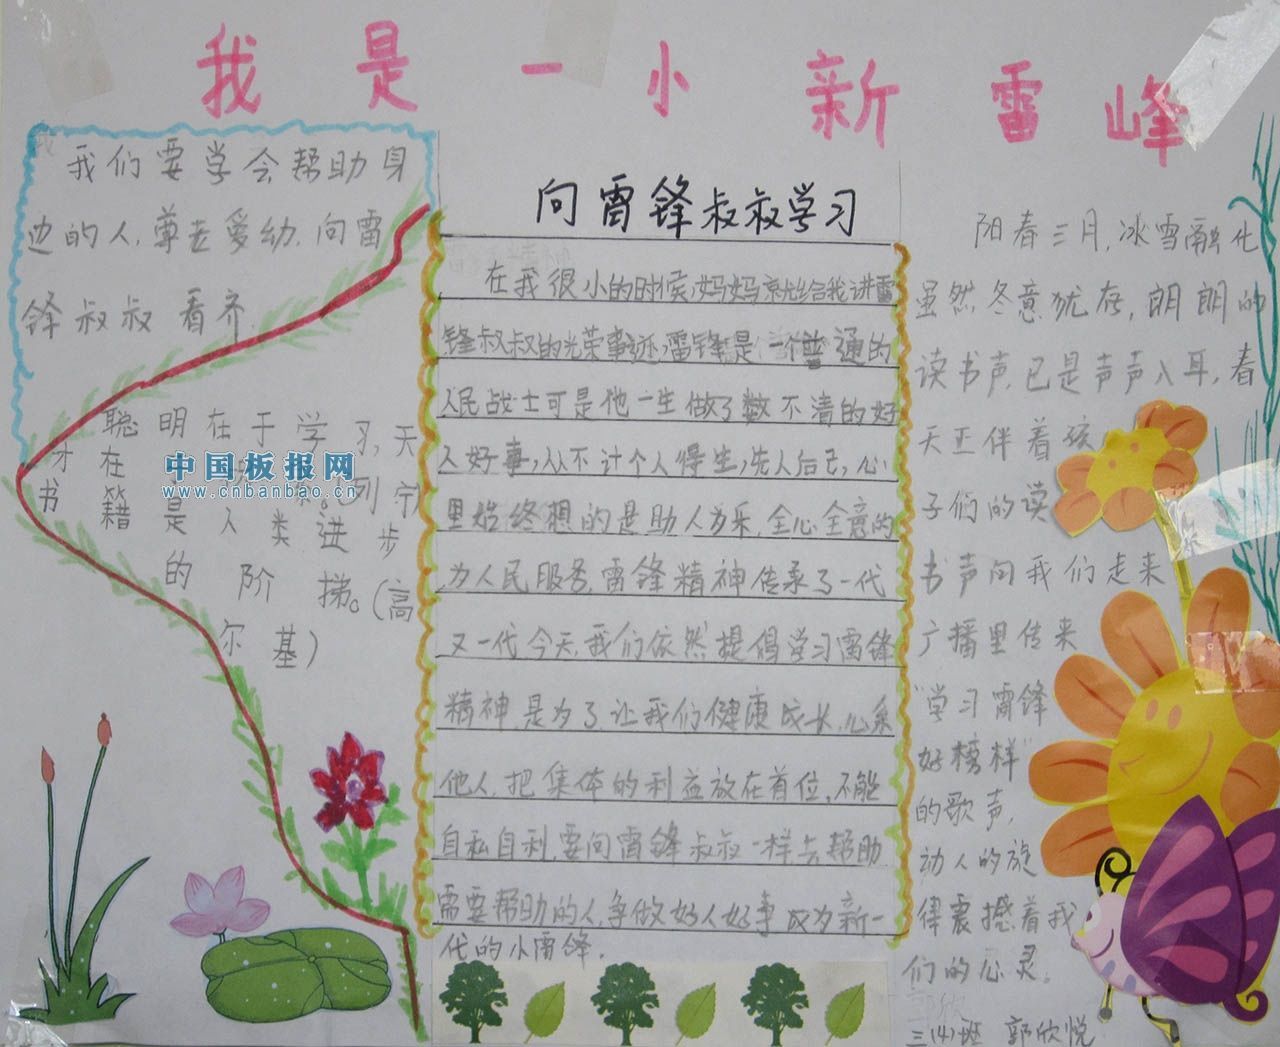 我是一小新雷峰
我们要学会帮助身
边的人,尊老爱幼.向雷
锋叔叔看齐.
聪明在于学习,天
才在
列宁
书籍是人类进步
的阶梯。(高
尔基)
中国板报网
www.cnbanbao.cn
向雷锋叔叔学习
在我很小的时候,妈妈就给我讲雷
锋叔叔的光荣事迹,雷锋是一个普通的
人民战士可是他一生做了数不清的好
人好事,从不计个人得生,先人后己,心
里始终想的是助人为乐,全心全意的
为人民服务.雷锋精神传承了一代
又一代今天,我们依然提倡学习雷锋
精神,是为了让我们健康成长,心系
他人,把集体的利益放在首位,不能
自私自利,要向雷锋叔叔一样去帮助
需要帮助的人,争做好人好事成为新一
代的小雷锋.
阳春三月,冰雪融化
虽然冬意犹存,朗朗的
读书声,已是声声入耳,春
天正伴着孩
子们的读
书声向我们走来
广播里传来
"学习雷锋
好榜样"
的歌声,
动人的旋
律震撼着我
们的心灵。
三(4)班 郭欣悦